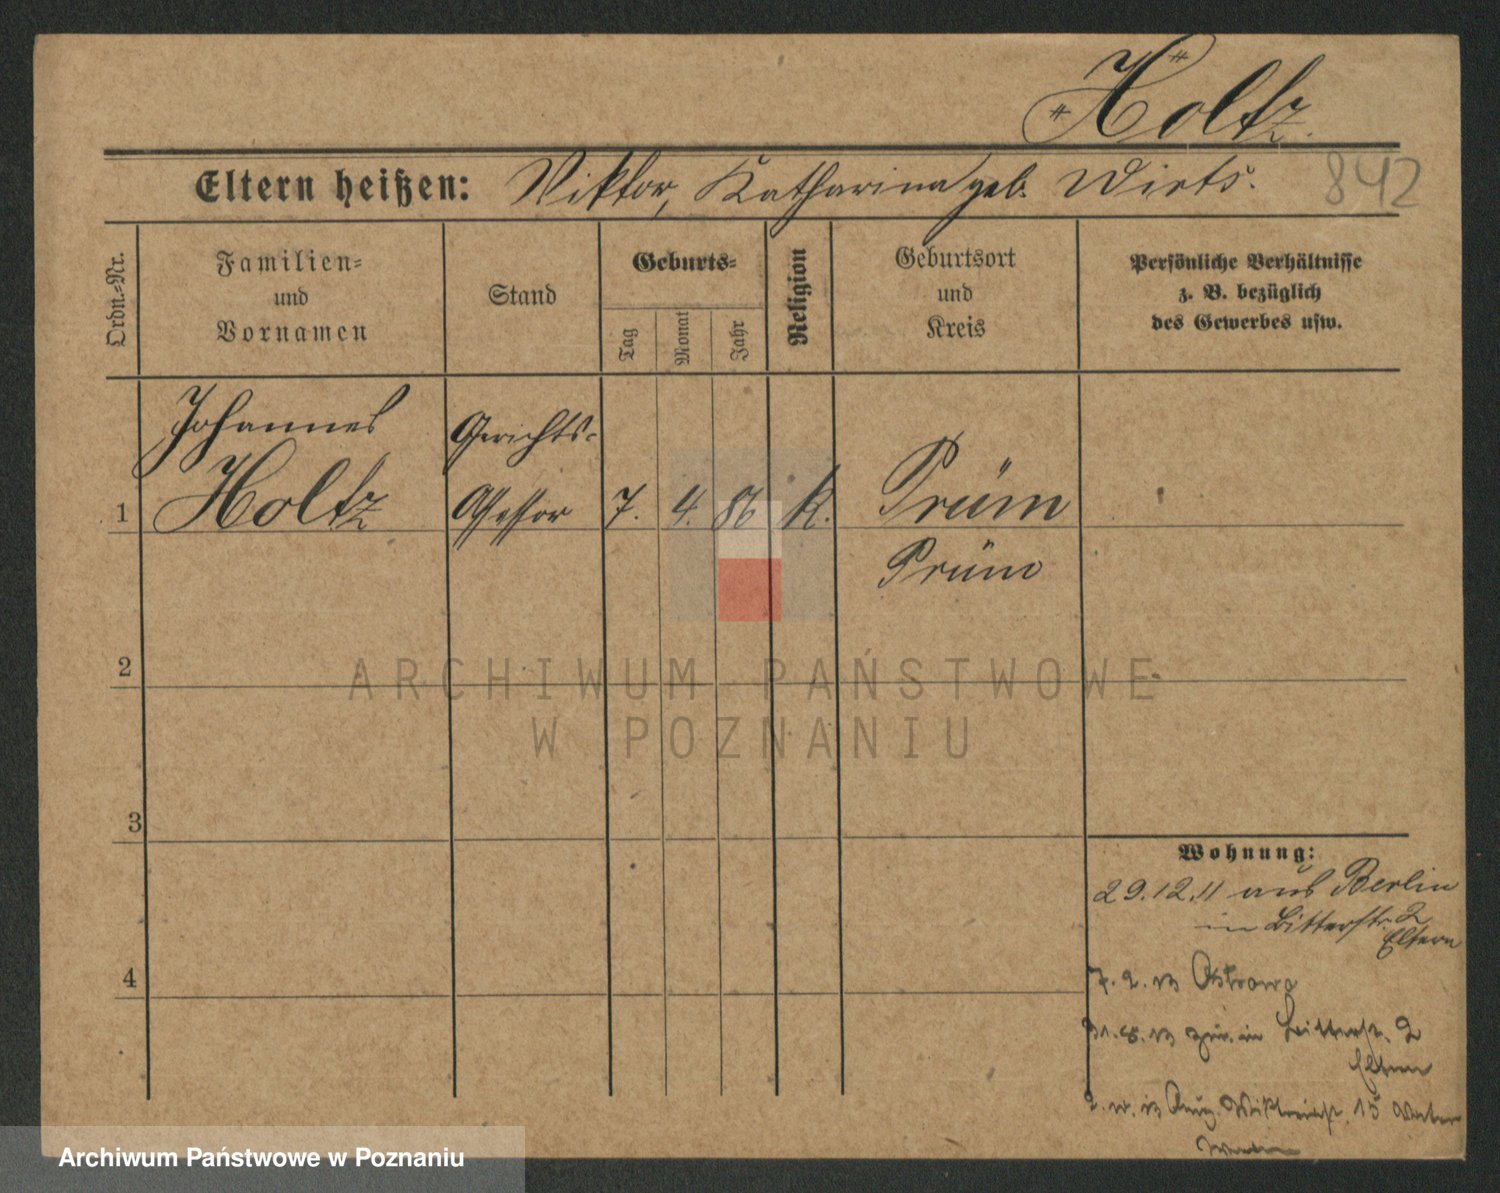 Holtz.
Eltern heißen: Viktor, Katharina geb. Wirts.
842
Ordn.-Nr.
Familien-
und
Vornamen
Stand
Geburts-
Tag
Monat
Jahr
Religion
Geburtsort
und
Kreis
Persönliche Verhältnisse
z. B. bezüglich
des Gewerbes usw.
Johannes
Gerichts-
1 Holtz Assessor 7. 4. 86 K. Prüm
Prüm
2
ARCHIWUM PAŃSTWOWE
W POZNANIU
3
4
Wohnung:
29.12.11 aus Berlin
in Bitterstr. 2
Eltern
7. 2. 13 Ostrowo
31. 8. 13 zur. in Bitterstr. 2
Eltern
Aug. Viktoriastr. 15
Archiwum Państwowe w Poznaniu